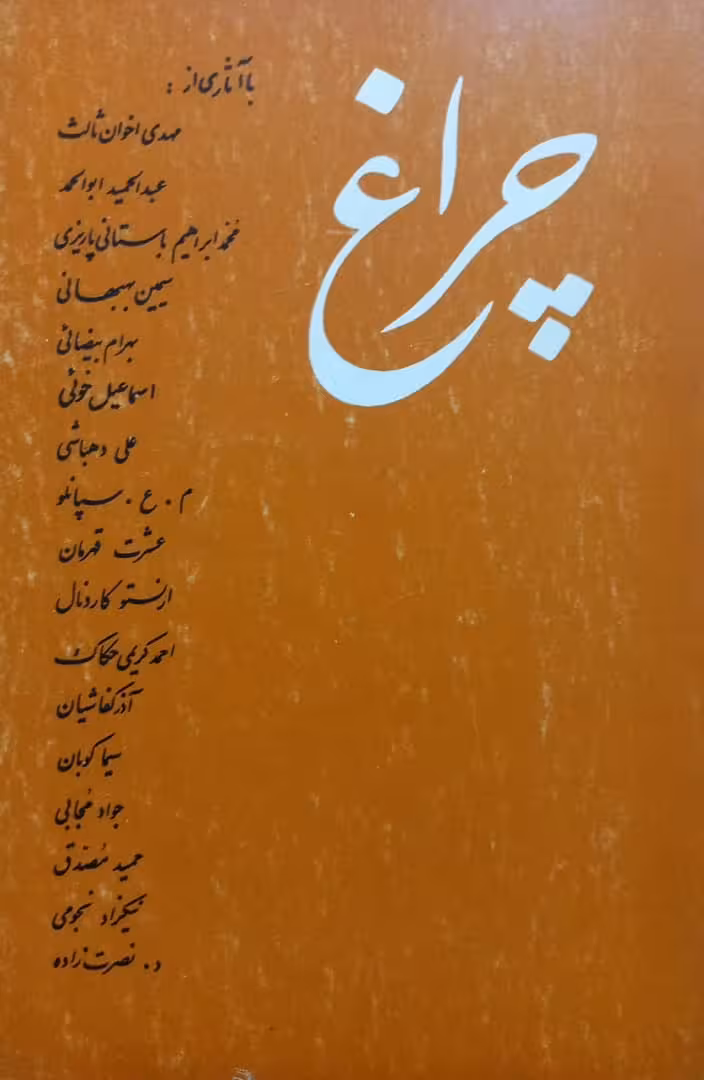 چراغ
با آثاری از :
مهدی اخوان ثالث
عبدالحمید ابوالحمد
محمد ابراهیم باستانی پاریزی
سیمین بهبهانی
بهرام بیضائی
اسماعیل خوئی
علی دهباشی
م . ع . سپانلو
عشرت قهرمان
ارنستو کاردنال
احمد کریمی حکاک
آذر کفاشیان
سیما کوبان
جواد مجابی
حمید مصدق
نیکزاد نجومی
د . نصرت زاده